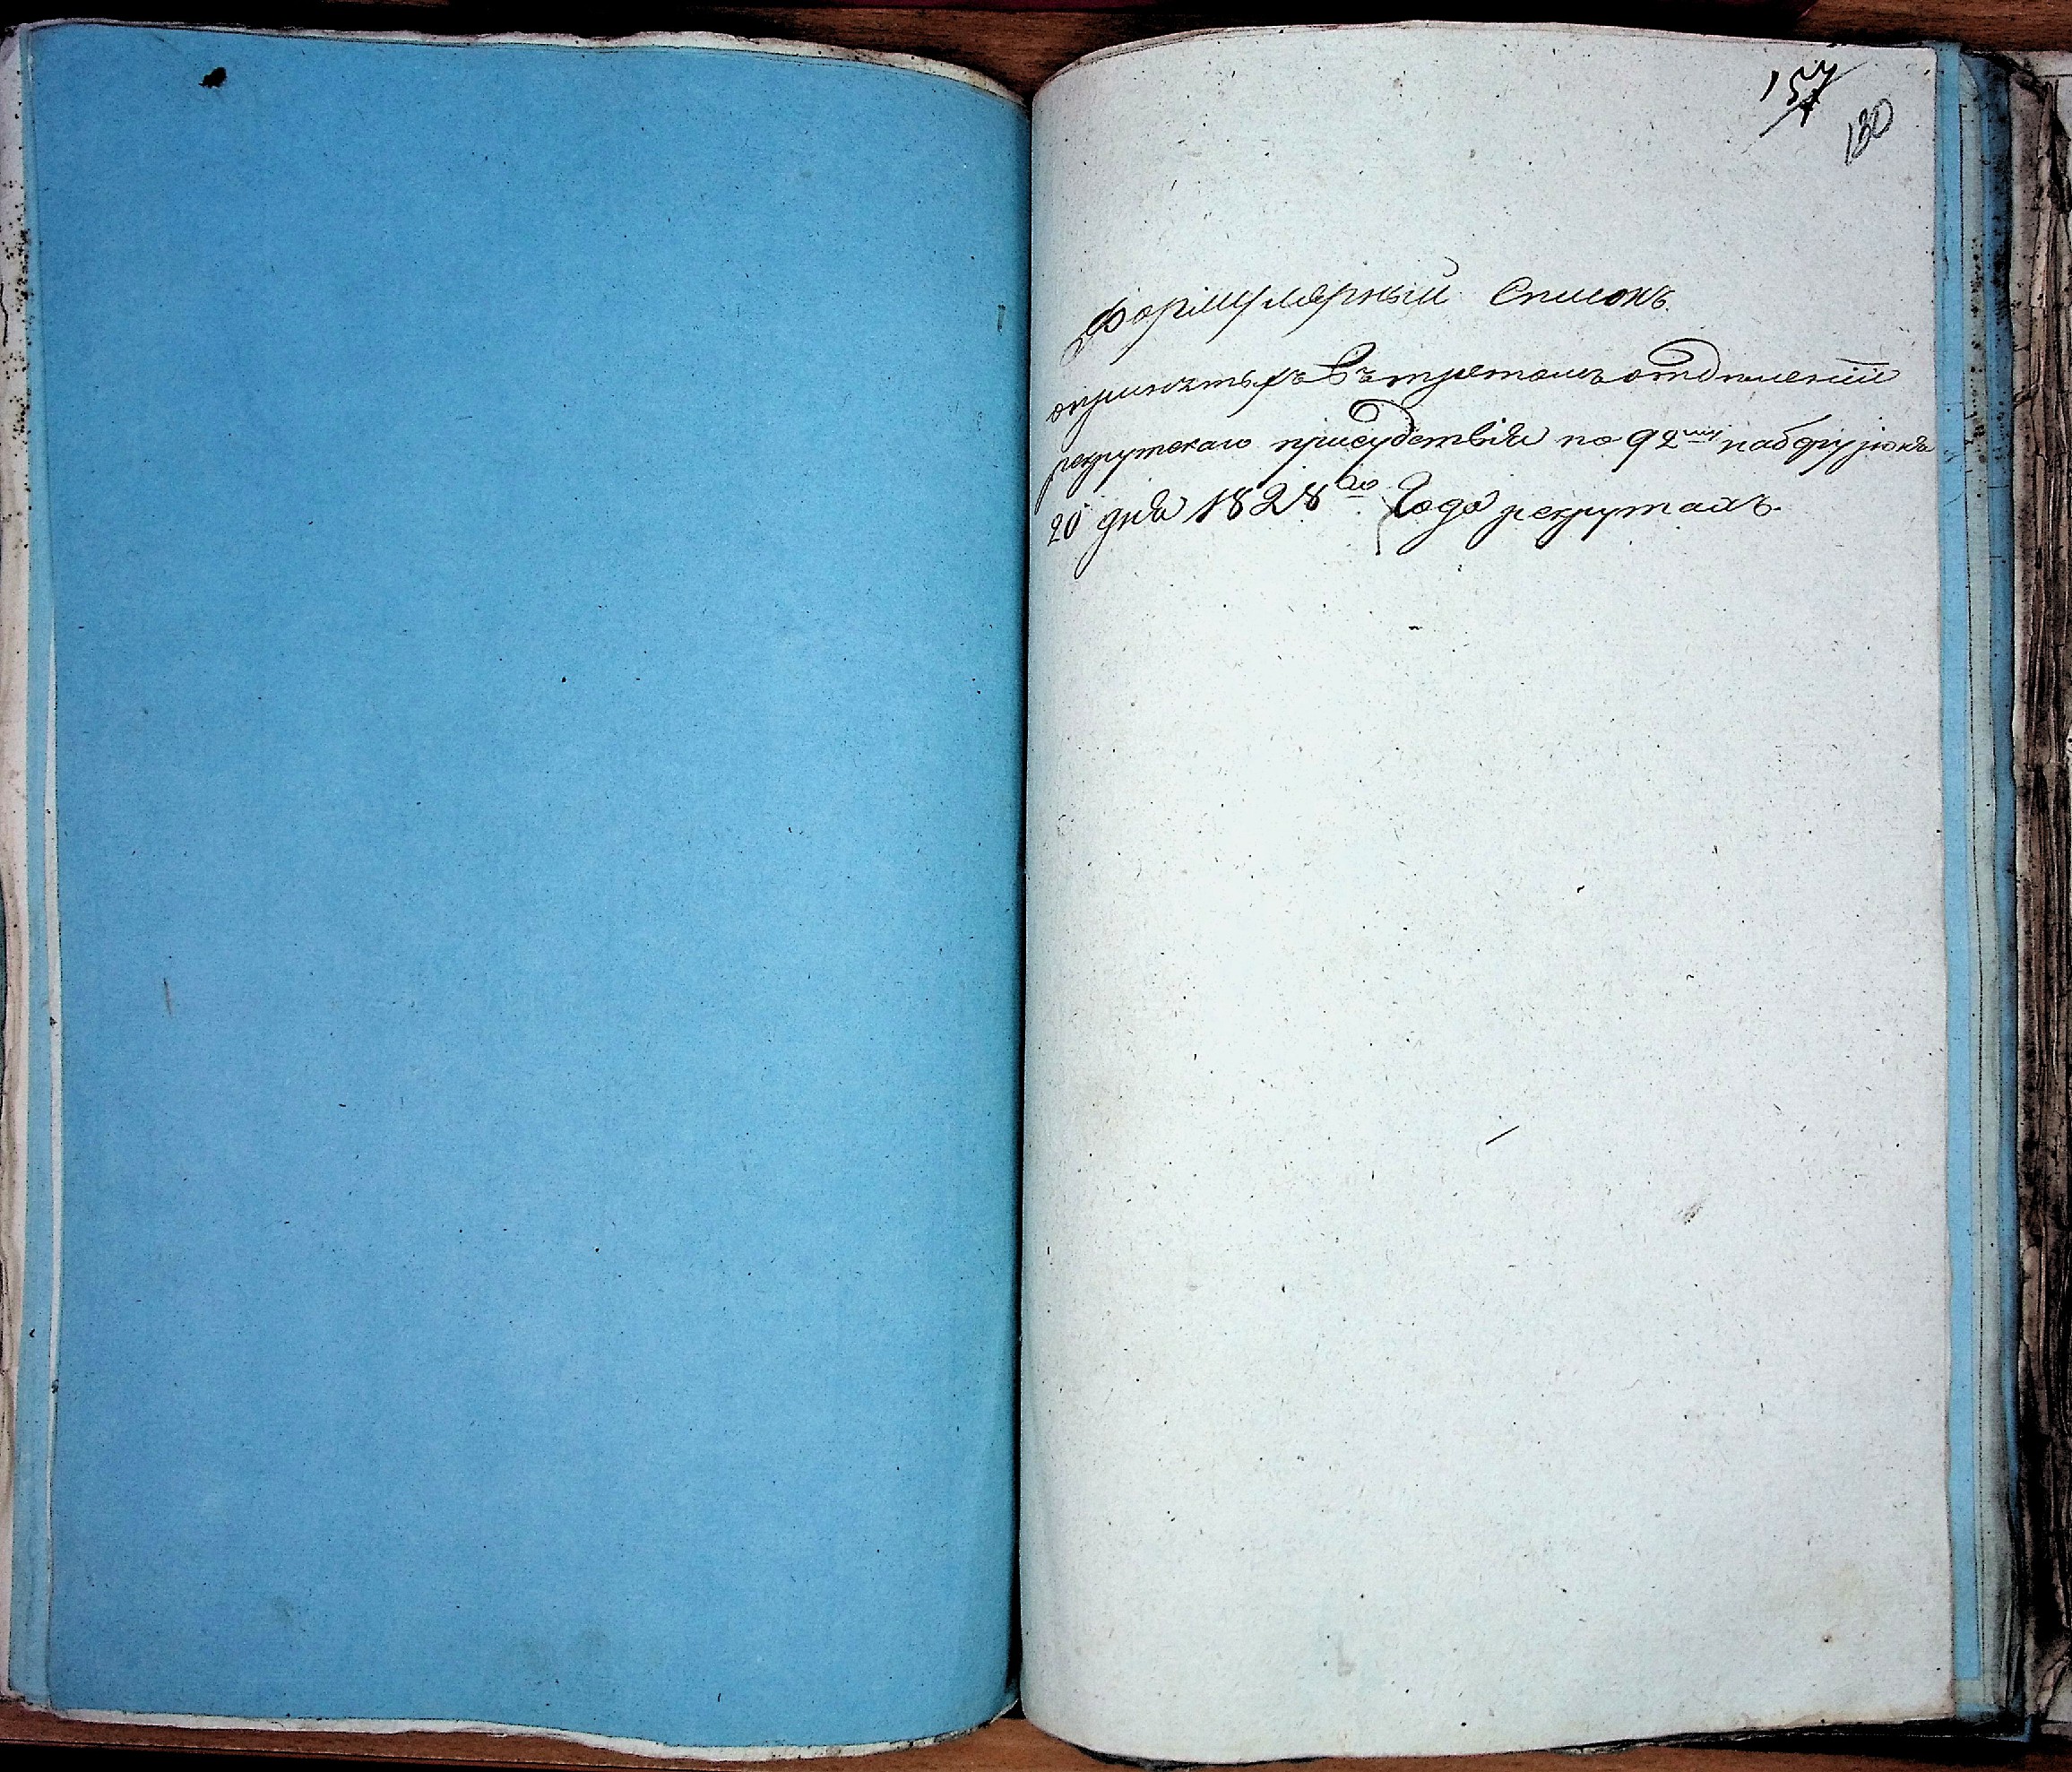 157
130
Формулярный Списокъ
опринятыхъ Вътретомъ отделенїи
рекрутскаго присудствїя по 92му набору июня
20 дня 1828го Года рекрутахъ.